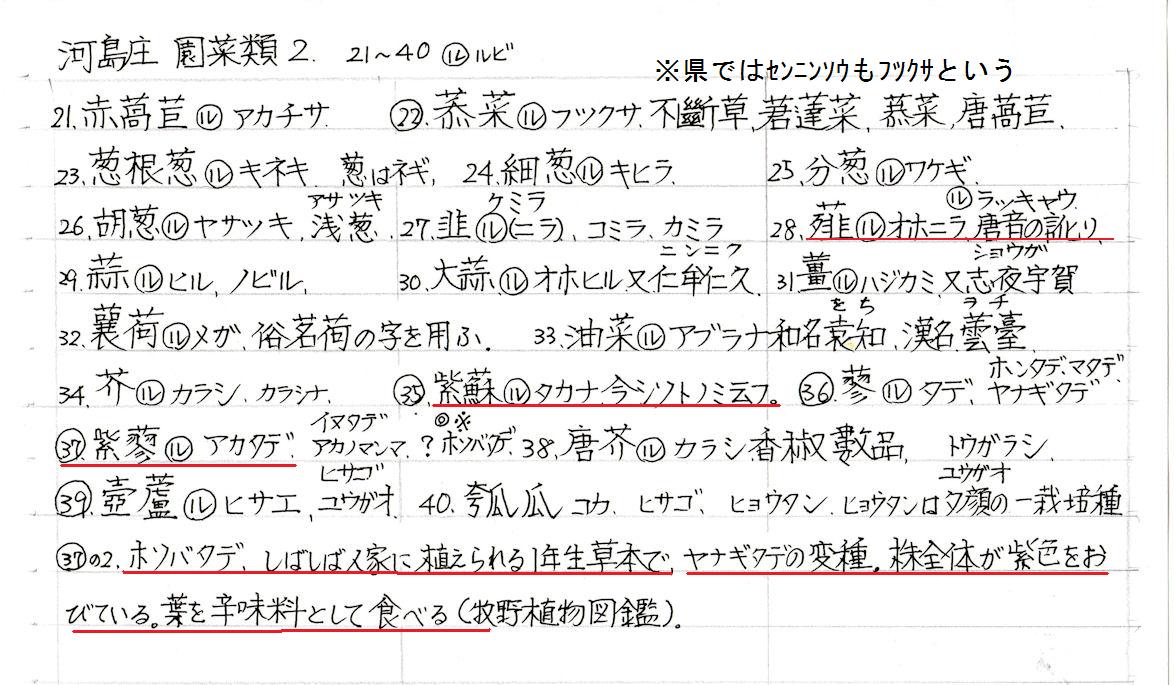 河島庄 園菜類2. 21~40 ㋸ルビ
※県ではｾﾝﾆﾝｿｳもﾌﾂｸｻという
21.赤萵苣㋸アカチサ. ㉒.菾菜㋸フツクサ.不斷草,莙薘菜, 菾菜,唐萵苣.
23.葱根葱㋸キネキ 葱はネギ, 24.細葱㋸キヒラ. 25.分葱㋸ワケギ.
アサツキ ケミラ ㋸ラッキャウ.
26.胡葱㋸ヤサツキ.浅葱. 27.韭㋸(ニラ)、コミラ、カミラ 28.㋸オホニラ.唐音の訛り、
ニンニク ショウガ
29.蒜㋸ヒル,ノビル, 30.大蒜㋸オホヒル又仁牟仁久. 31薑㋸ハジカミ、又志夜宇賀
をち ヲチ
32.蘘荷㋸メガ.俗茗荷の字を用ふ. 33.油菜㋸アブラナ和名袁知、漢名.蕓薹.
ホンタデ.マタデ
34.芥㋸カラシ、カラシナ. ㉟.紫蘇㋸タカナ.今シソトノミ云フ。 ㊱.蓼㋸タデ、ヤナギタデ
イヌタデ ◎※
㊲.紫蓼㋸アカタデ アカノマンマ.?ホソバタデ. 38.唐芥㋸カラシ.香椒數品, トウガラシ,
ヒサゴ ユウガオ
㊴.壺蘆㋸ヒサエ,ユウガオ 40.瓠瓜 コカ ヒサゴ、ヒョウタン.ヒョウタンは夕顔の一栽培種
㊲の2.ホソバタデ、しばしば人家に植えられる1年生草本で,ヤナギタデの変種。株全体が紫色をお
びている。葉を辛味料として食べる(牧野植物図鑑).